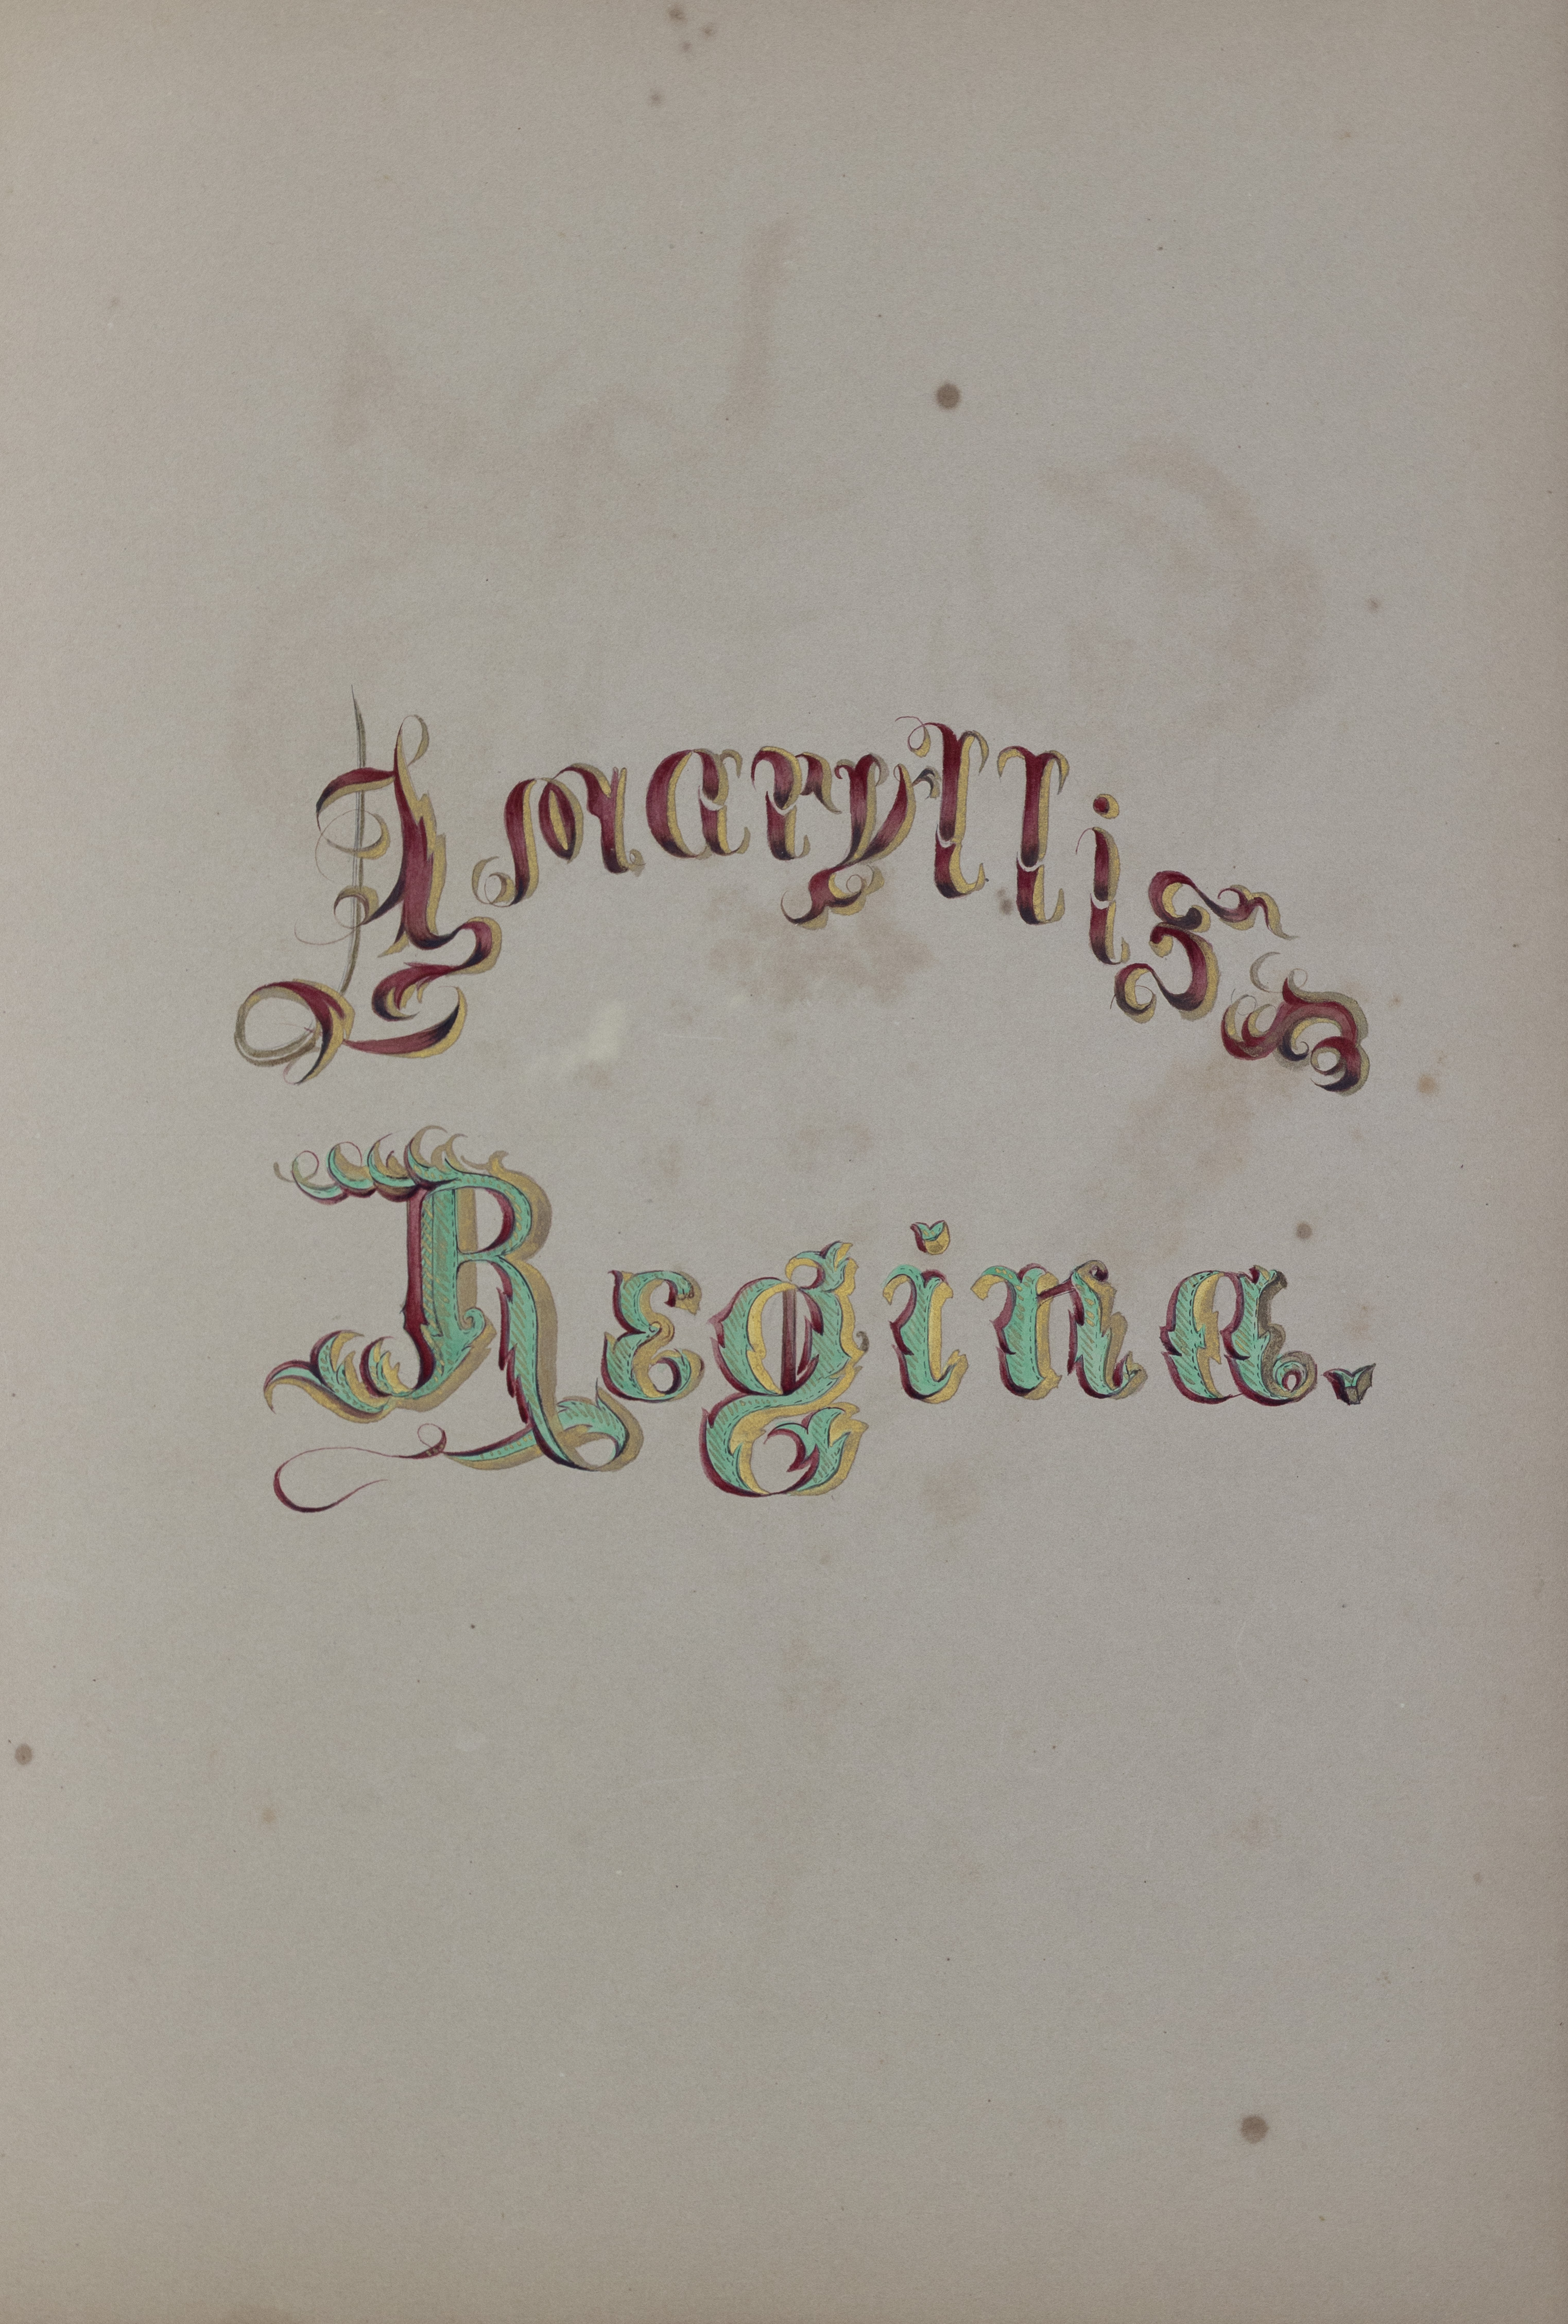 Amaryllis
Regina.